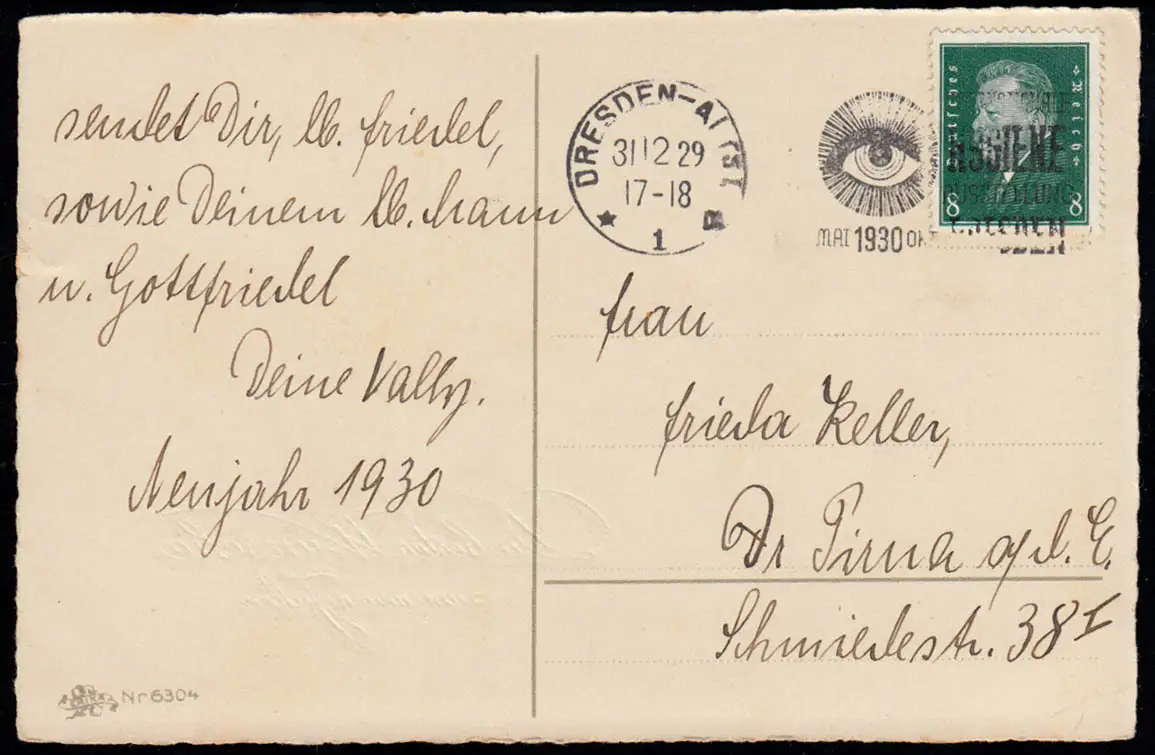 sendet Dir, lb. Friedel,
sowie Deinem lb. Mann
u. Gottfriedel
Deine Vally.
Neujahr 1930
Nr 6304
DRESDEN-ALTST.
31 12 29
17-18
1
MAI 1930 OKT
HYGIENE
AUSSTELLUNG
DRESDEN
Deutsches Reich
8 8
Frau
Frieda Keller,
Pirna a/d. E.
Schmiedestr. 38 I